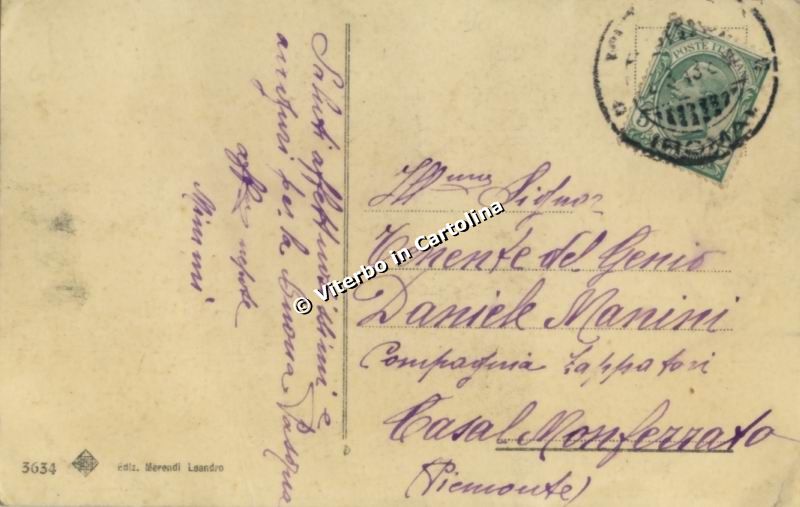 Saluti affettuosissimi e
auguri per la buona Pasqua
aff. nipote
Mimmi
POSTE ITALIANE
ROMA
Ill.mo Signor
Tenente del Genio
Daniele Manini
Compagnia Zappatori
Casal Monferrato
(Piemonte)
© Viterbo in Cartolina
3634 Ediz. Merendi Leandro